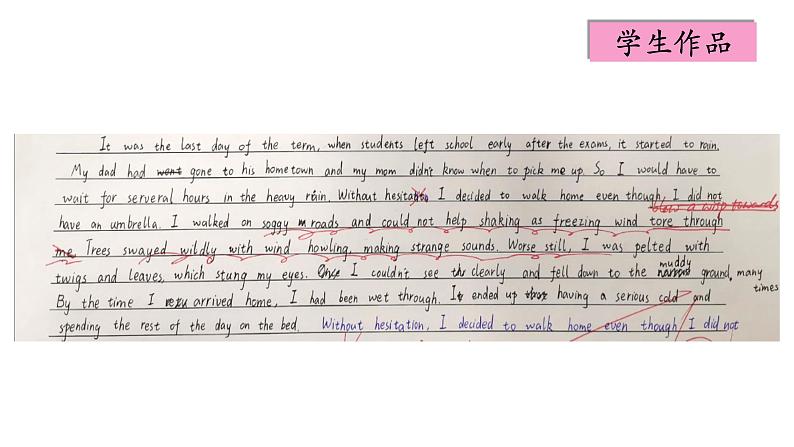 学生作品
It was the last day of the term, when students left school early after the exams, it started to rain.
My dad had went gone to his hometown and my mom didn't know when to pick me up. So I would have to
wait for serveral hours in the heavy rain. Without hesitatio I decided to walk home even though I did not
blew a wisp towards
have an umbrella. I walked on soggy roads and could not help shaking as freezing wind tore through
me. Trees swayed wildly with wind howling, making strange sounds. Worse still, I was pelted with
muddy
twigs and leaves, which stung my eyes. I couldn't see clearly and fell down to the narrow ground, many
times
By the time I arrived home, I had been wet through. I ended up having a serious cold and
spending the rest of the day on the bed. Without hesitation, I decided to walk home even though I did not